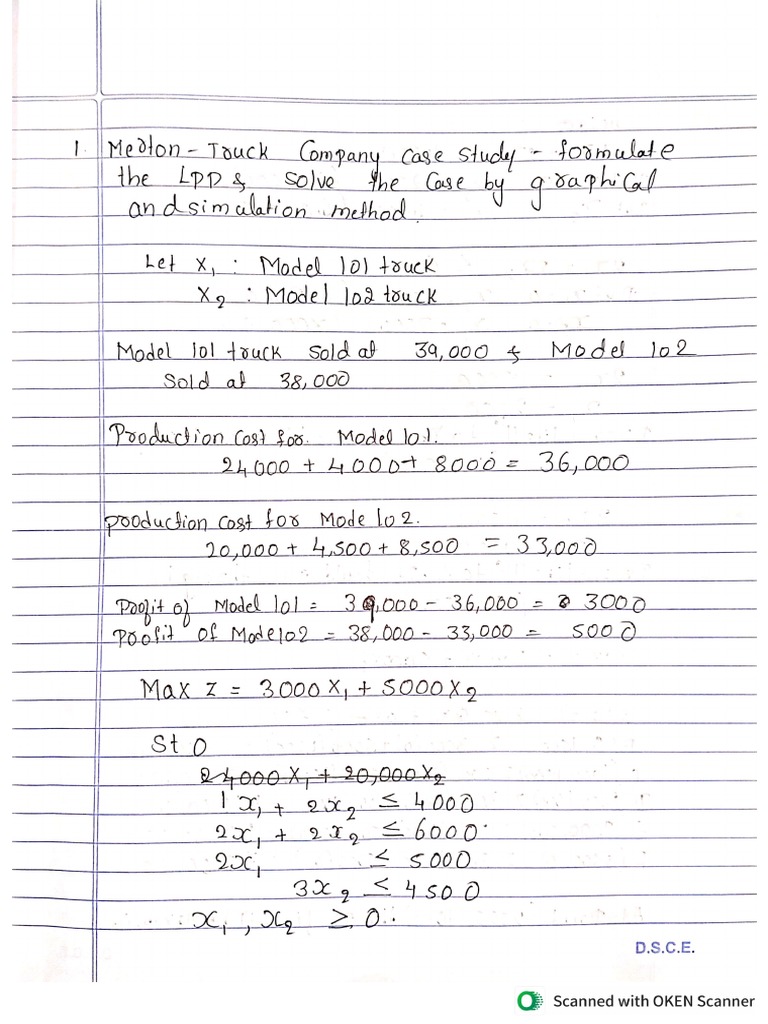 1. Merton - Truck Company case study - formulate
the LPP & solve the case by graphical
and simulation method.
Let X₁ : Model 101 truck
X₂ : Model 102 truck
Model 101 truck sold at 39,000 & Model 102
sold at 38,000
Production cost for Model 101.
24000 + 4000 + 8000 = 36,000
production cost for Mode 102.
20,000 + 4,500 + 8,500 = 33,000
Profit of Model 101 = 39,000 - 36,000 = 3000
Profit of Mode 102 = 38,000 - 33,000 = 5000
Max Z = 3000 X₁ + 5000 X₂
St O
24000 X₁ + 20,000 X₂
1x₁ + 2x₂ ≤ 4000
2x₁ + 2x₂ ≤ 6000
2x₁ ≤ 5000
3x₂ ≤ 4500
x₁, x₂ ≥ 0.
D.S.C.E.
Scanned with OKEN Scanner